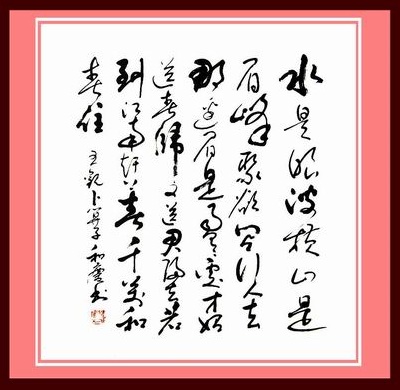 水是眼波横山是
眉峰聚欲问行人去
那边眉眼盈盈處才始
送春歸又送君歸去若
到江南赶上春千萬和
春住
王觀卜算子 和 书